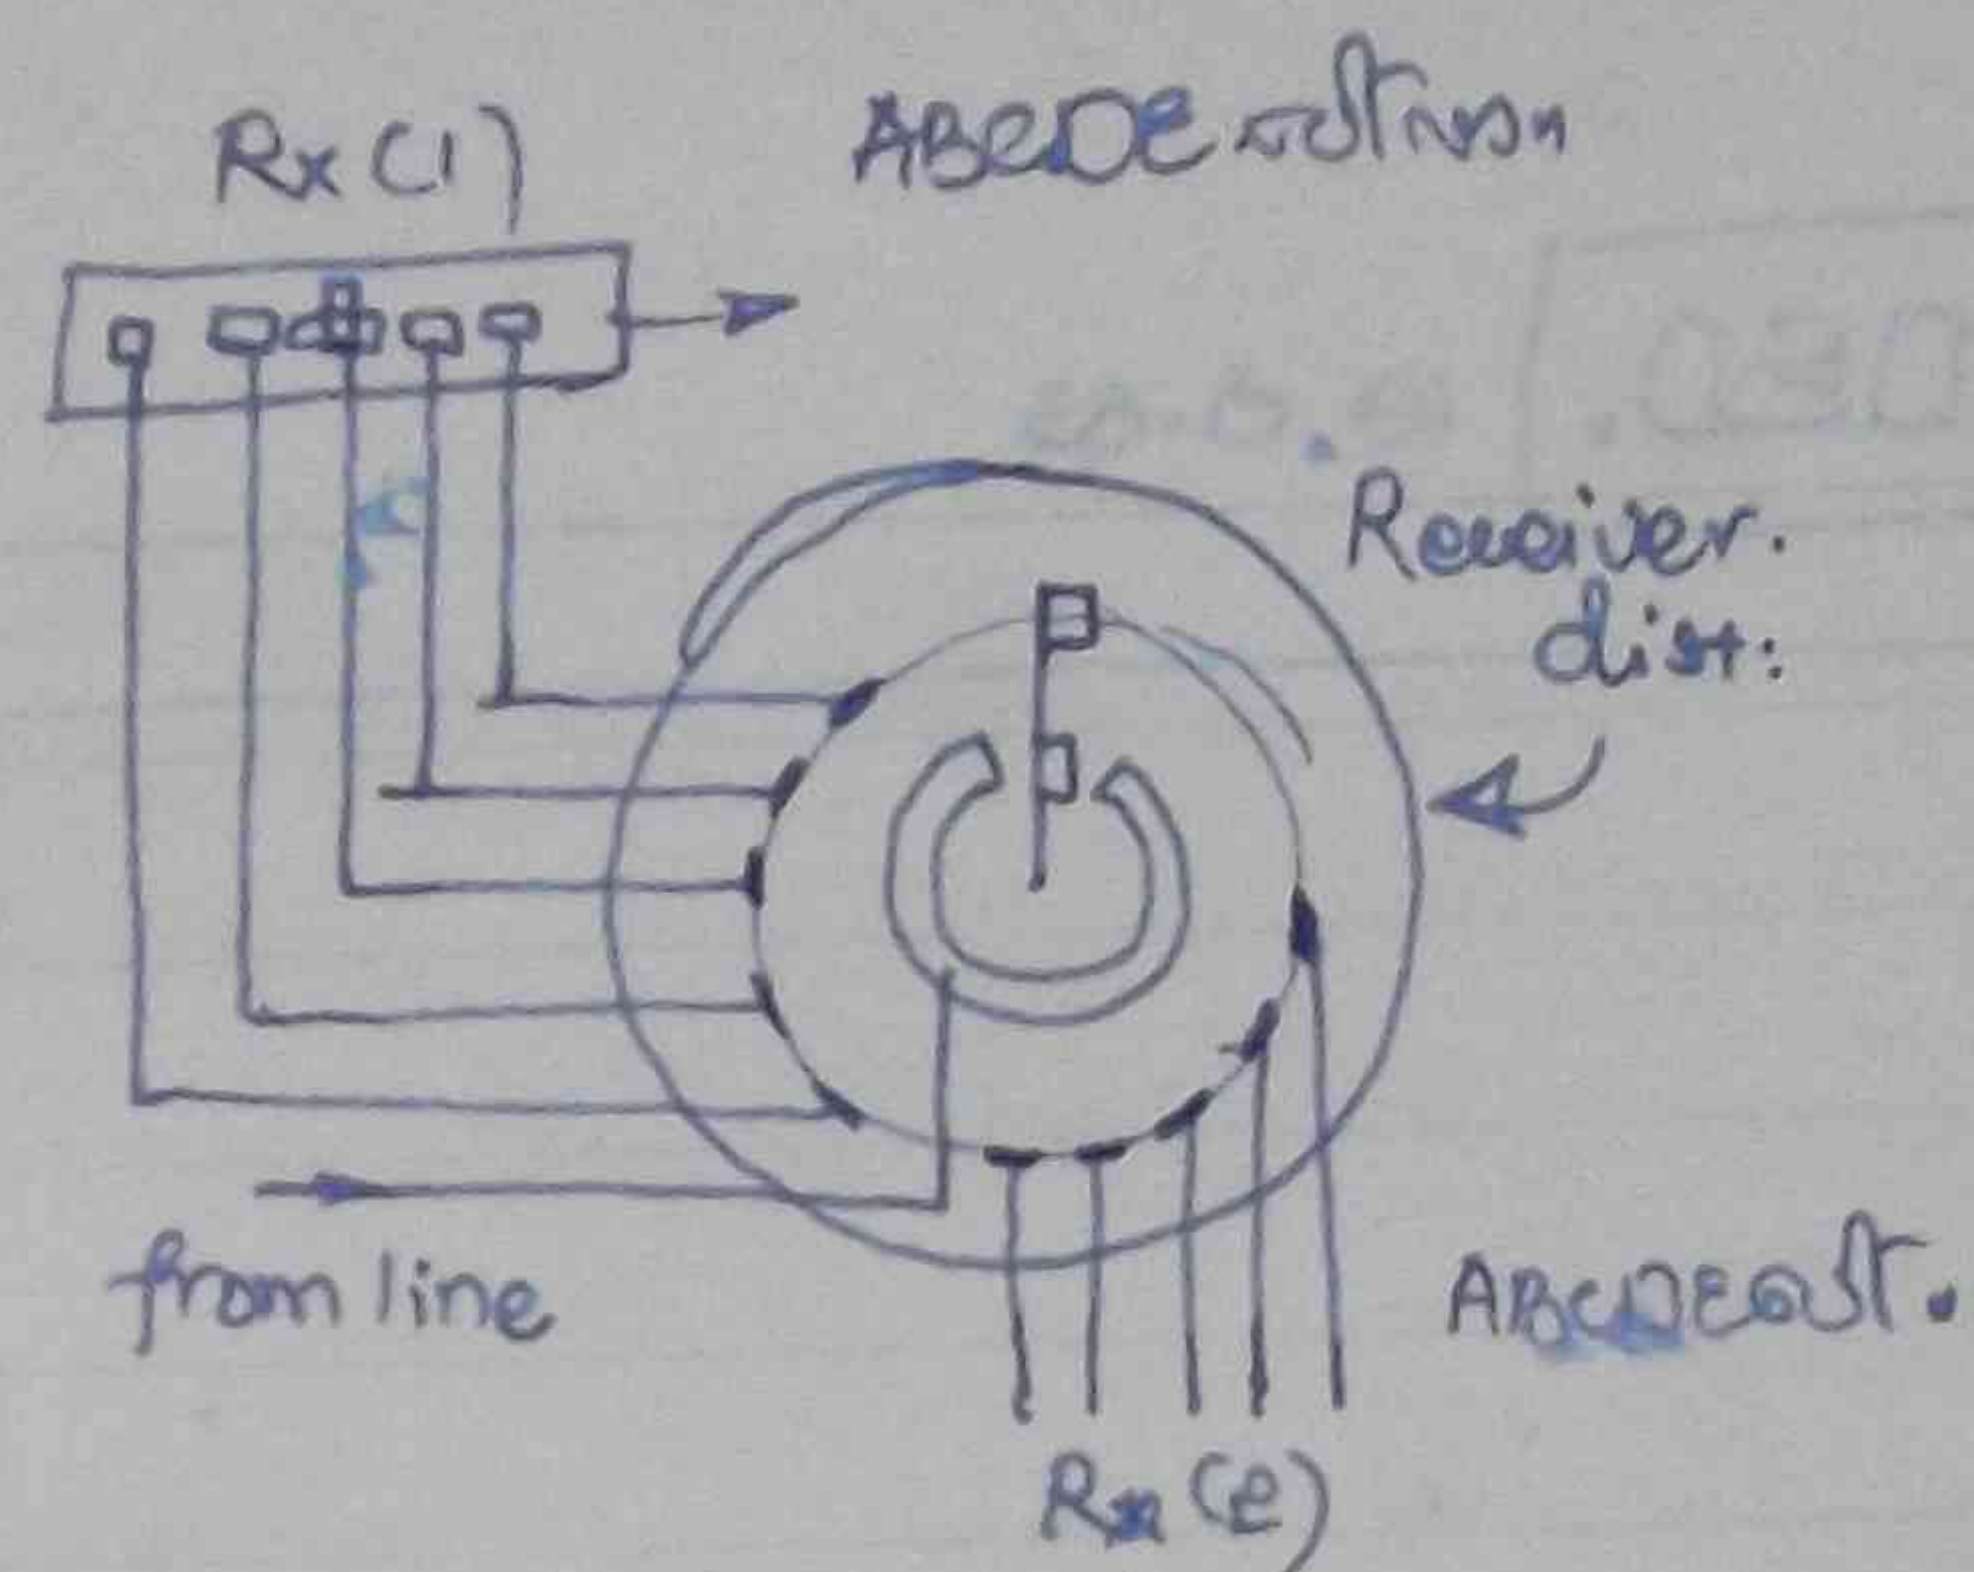 Rx (1)
ABCDE
Receiver.
dist:
from line
ABCDE
Rx (2)